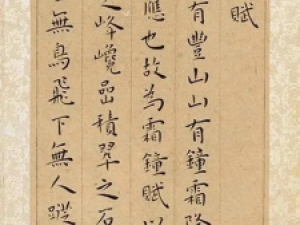 賦
有豐山山有鐘霜降
應也故為霜鐘賦以
之峰巉嵒積翠之石
無鳥飛下無人蹤